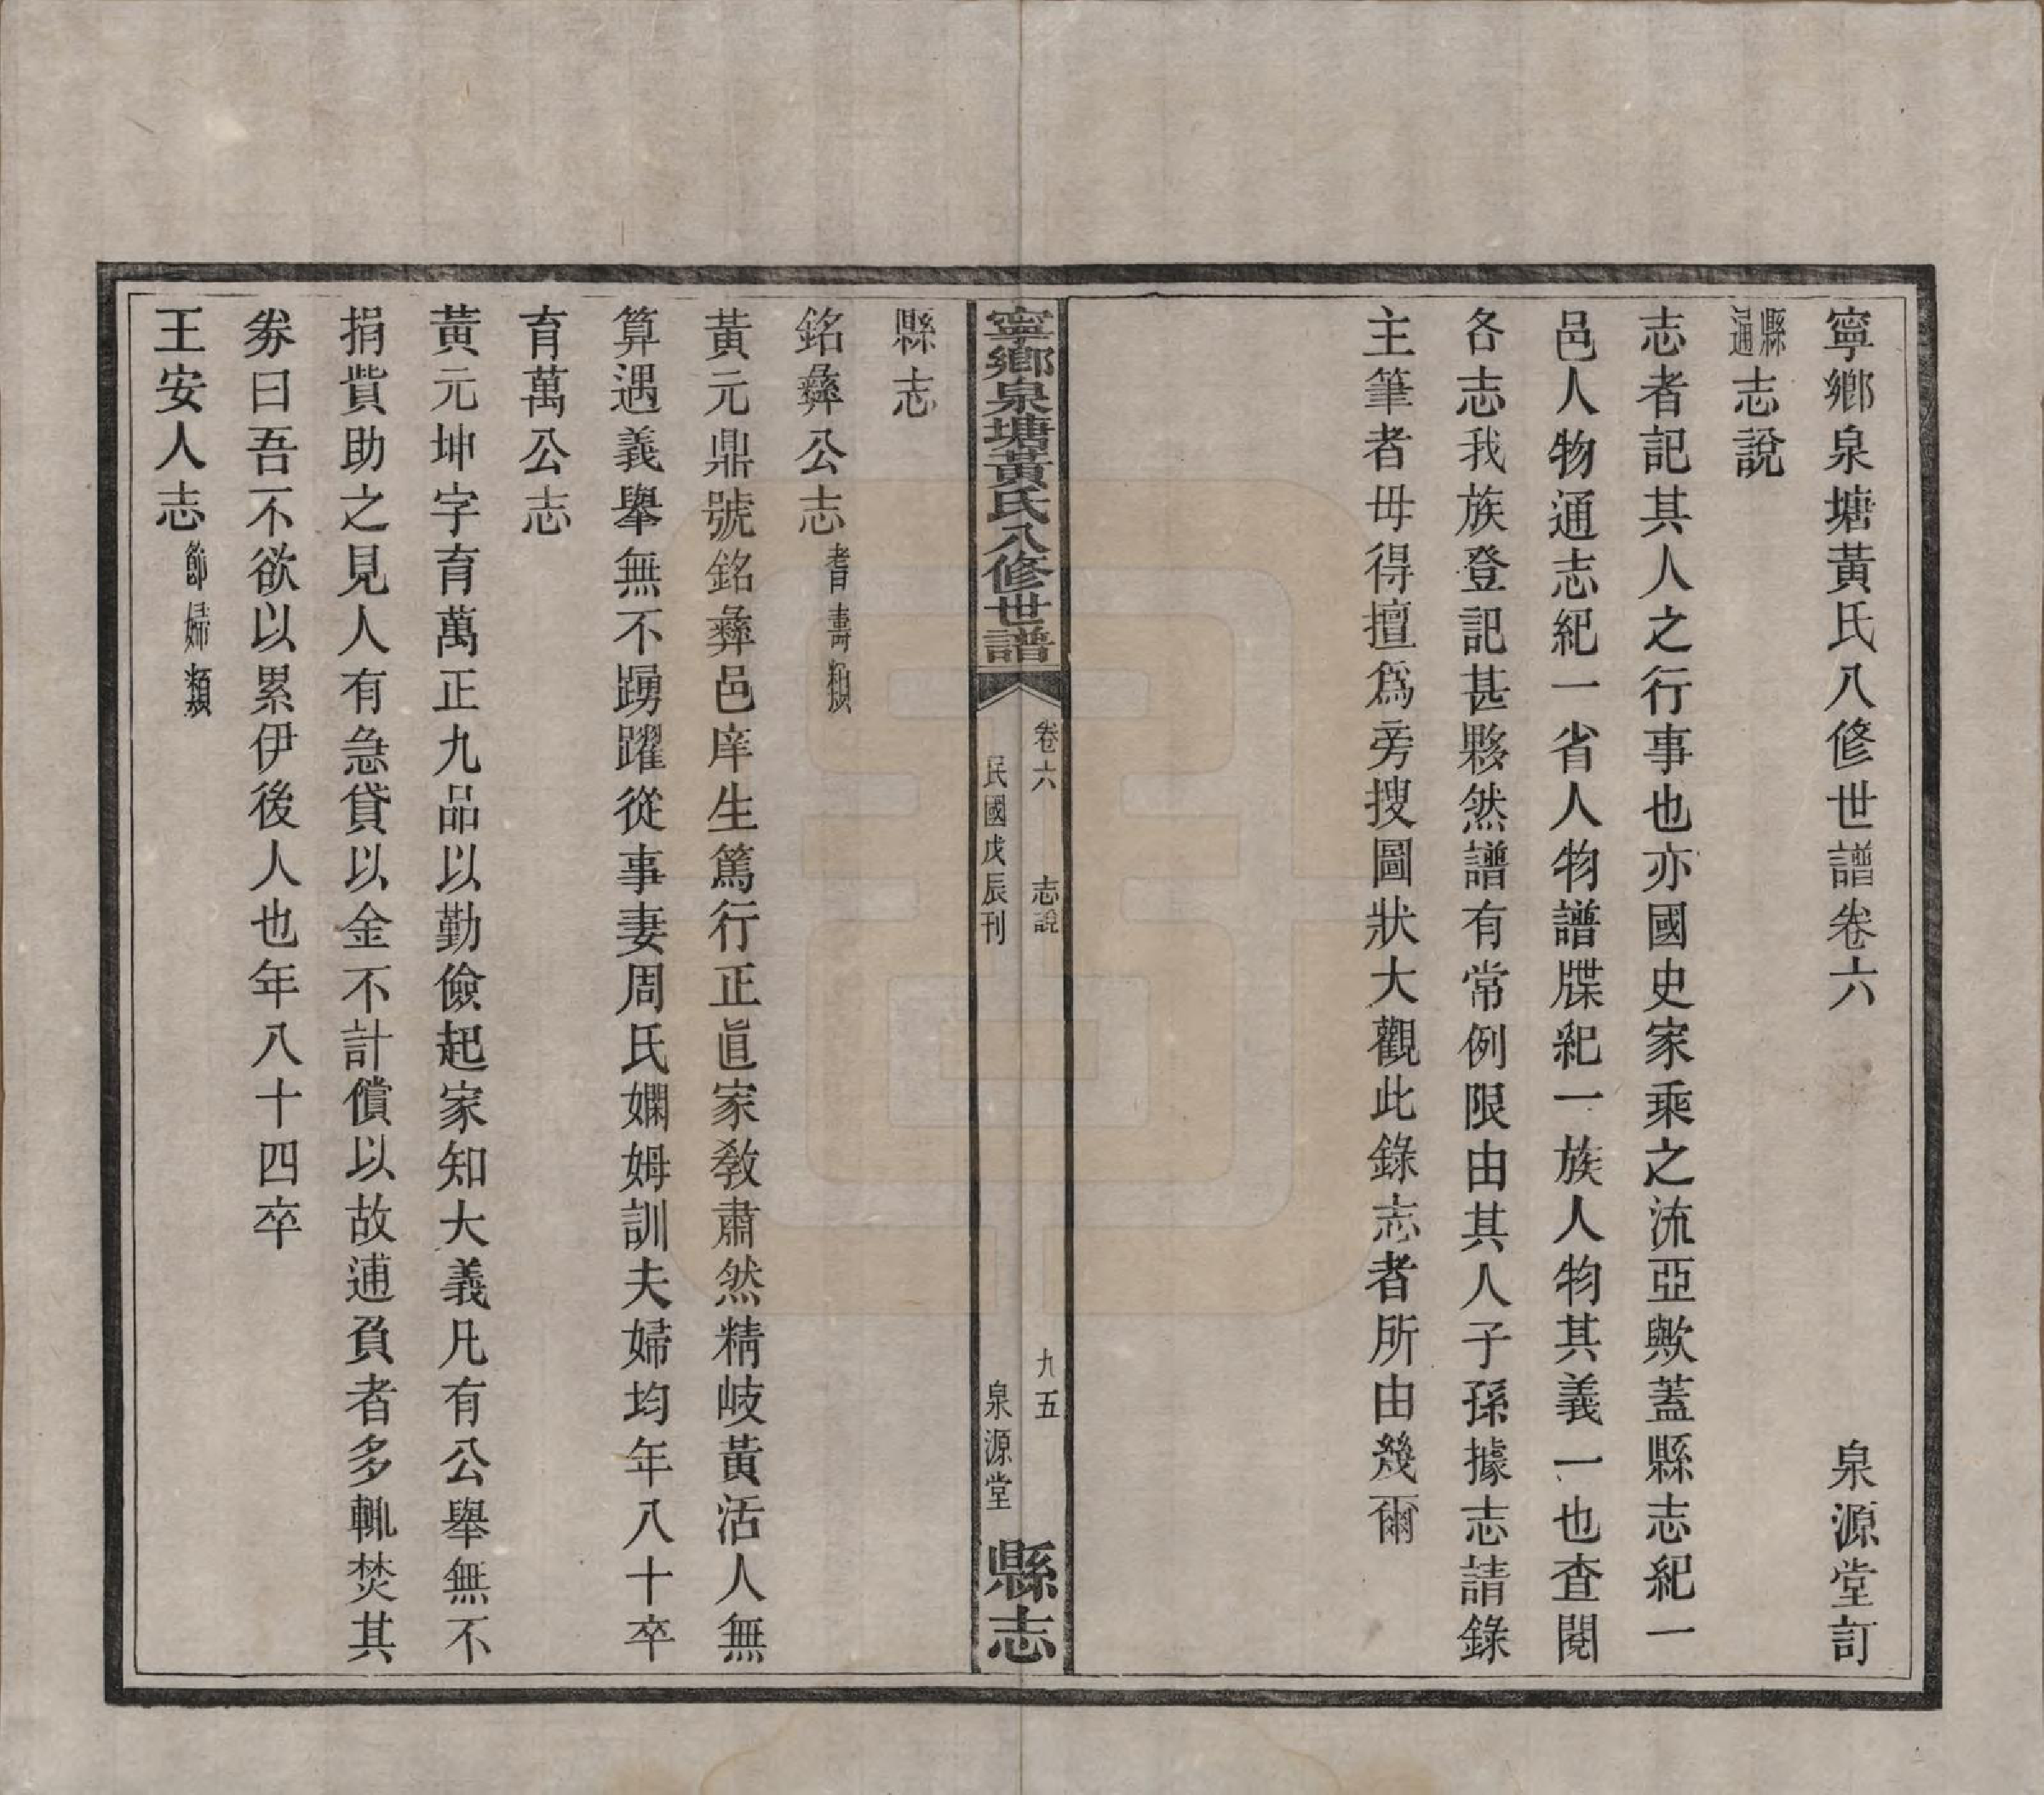 寧鄉泉塘黃氏八修世譜卷六　泉源堂訂
縣通志說
志者記其人之行事也亦國史家乘之流亞歟蓋縣志紀一
邑人物通志紀一省人物譜牒紀一族人物其義一也查閱
各志我族登記甚夥然譜有常例限由其人子孫據志請錄
主筆者毋得擅爲旁搜圖狀大觀此錄志者所由幾爾
寧鄉泉塘黃氏八修世譜
卷六　志說　九五
民國戊辰刊　泉源堂
縣志
縣志
銘彝公志耆壽類
黃元鼎號銘彝邑庠生篤行正直家教肅然精岐黃活人無
算遇義舉無不踴躍從事妻周氏嫻姆訓夫婦均年八十卒
育萬公志
黃元坤字育萬正九品以勤儉起家知大義凡有公舉無不
捐貲助之見人有急貸以金不計償以故逋負者多輒焚其
券曰吾不欲以累伊後人也年八十四卒
王安人志節婦類